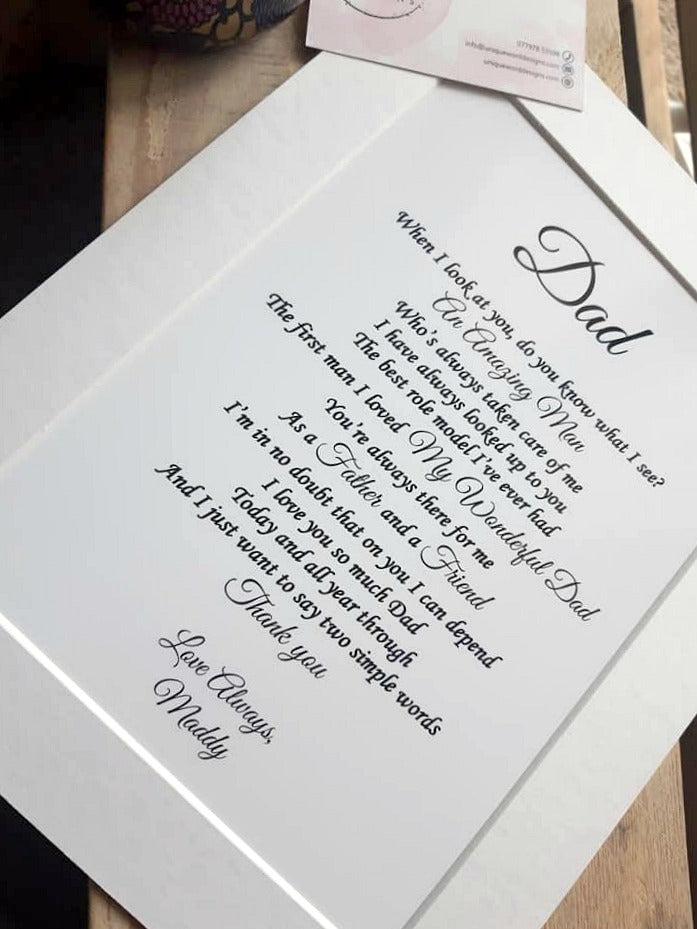 077978 53598
info@uniqueworddesigns.com
uniqueworddesigns.com
Dad
When I look at you, do you know what I see?
An Amazing Man
Who's always taken care of me
I have always looked up to you
The best role model I've ever had
The first man I loved My Wonderful Dad
You're always there for me
As a Father and a Friend
I'm in no doubt that on you I can depend
I love you so much Dad
Today and all year through
And I just want to say two simple words
Thank you
Love Always,
Maddy